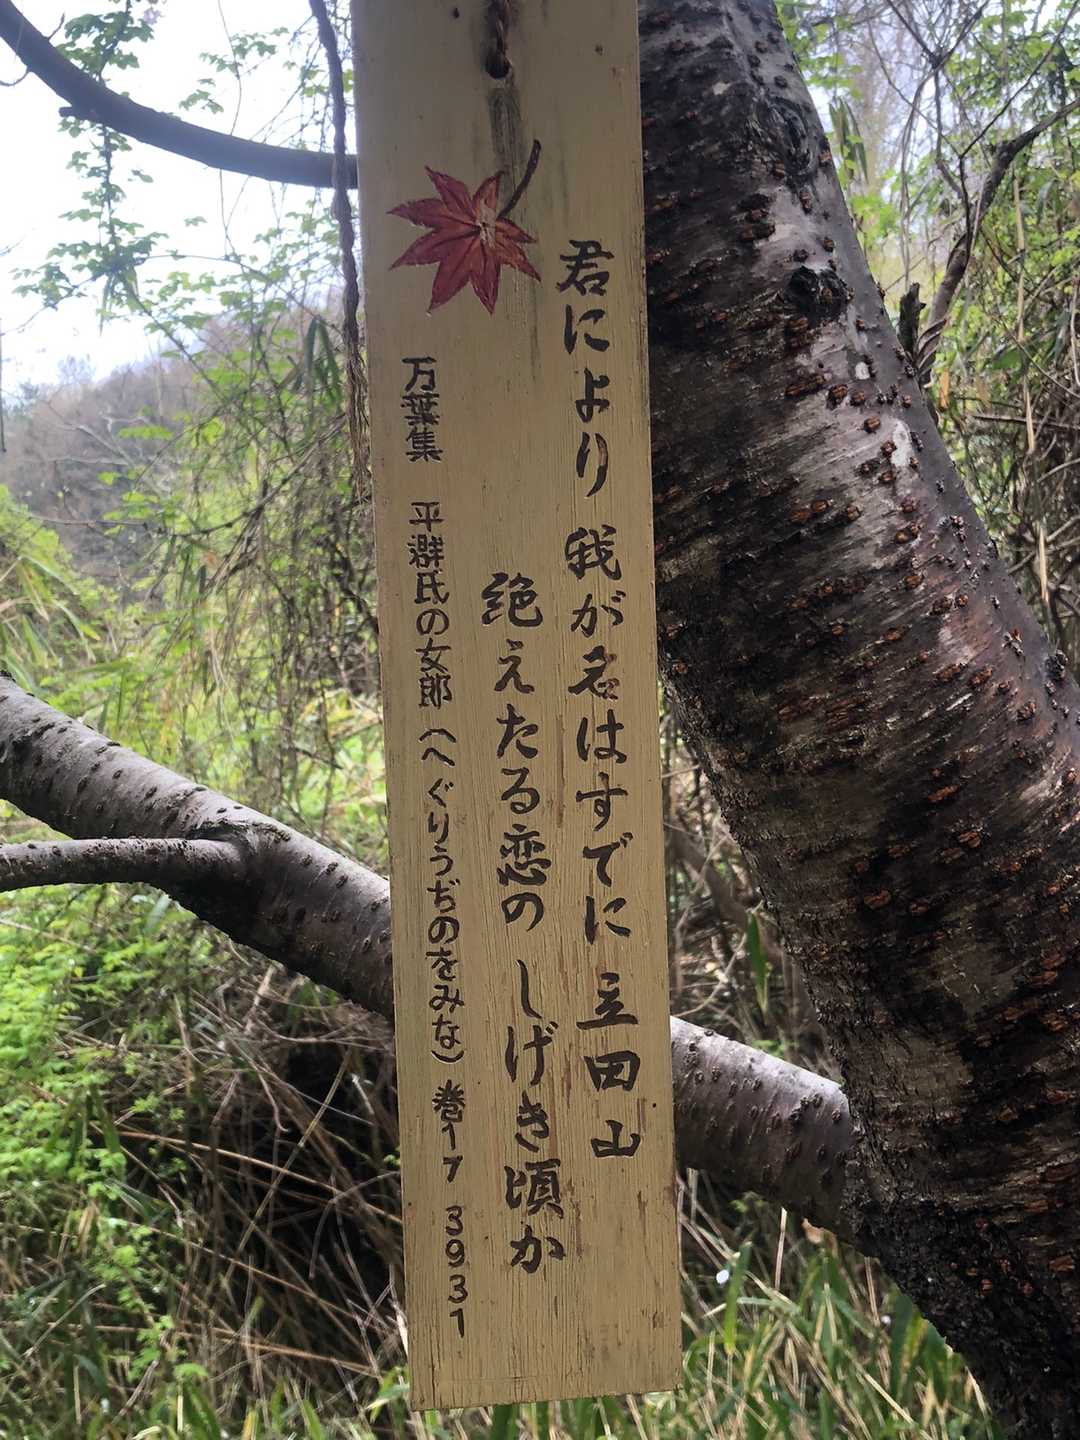 君により 我が名はすでに 立田山
絶えたる恋の しげき頃か
万葉集 平群氏の女郎(へぐりうぢのをみな) 巻17 3931